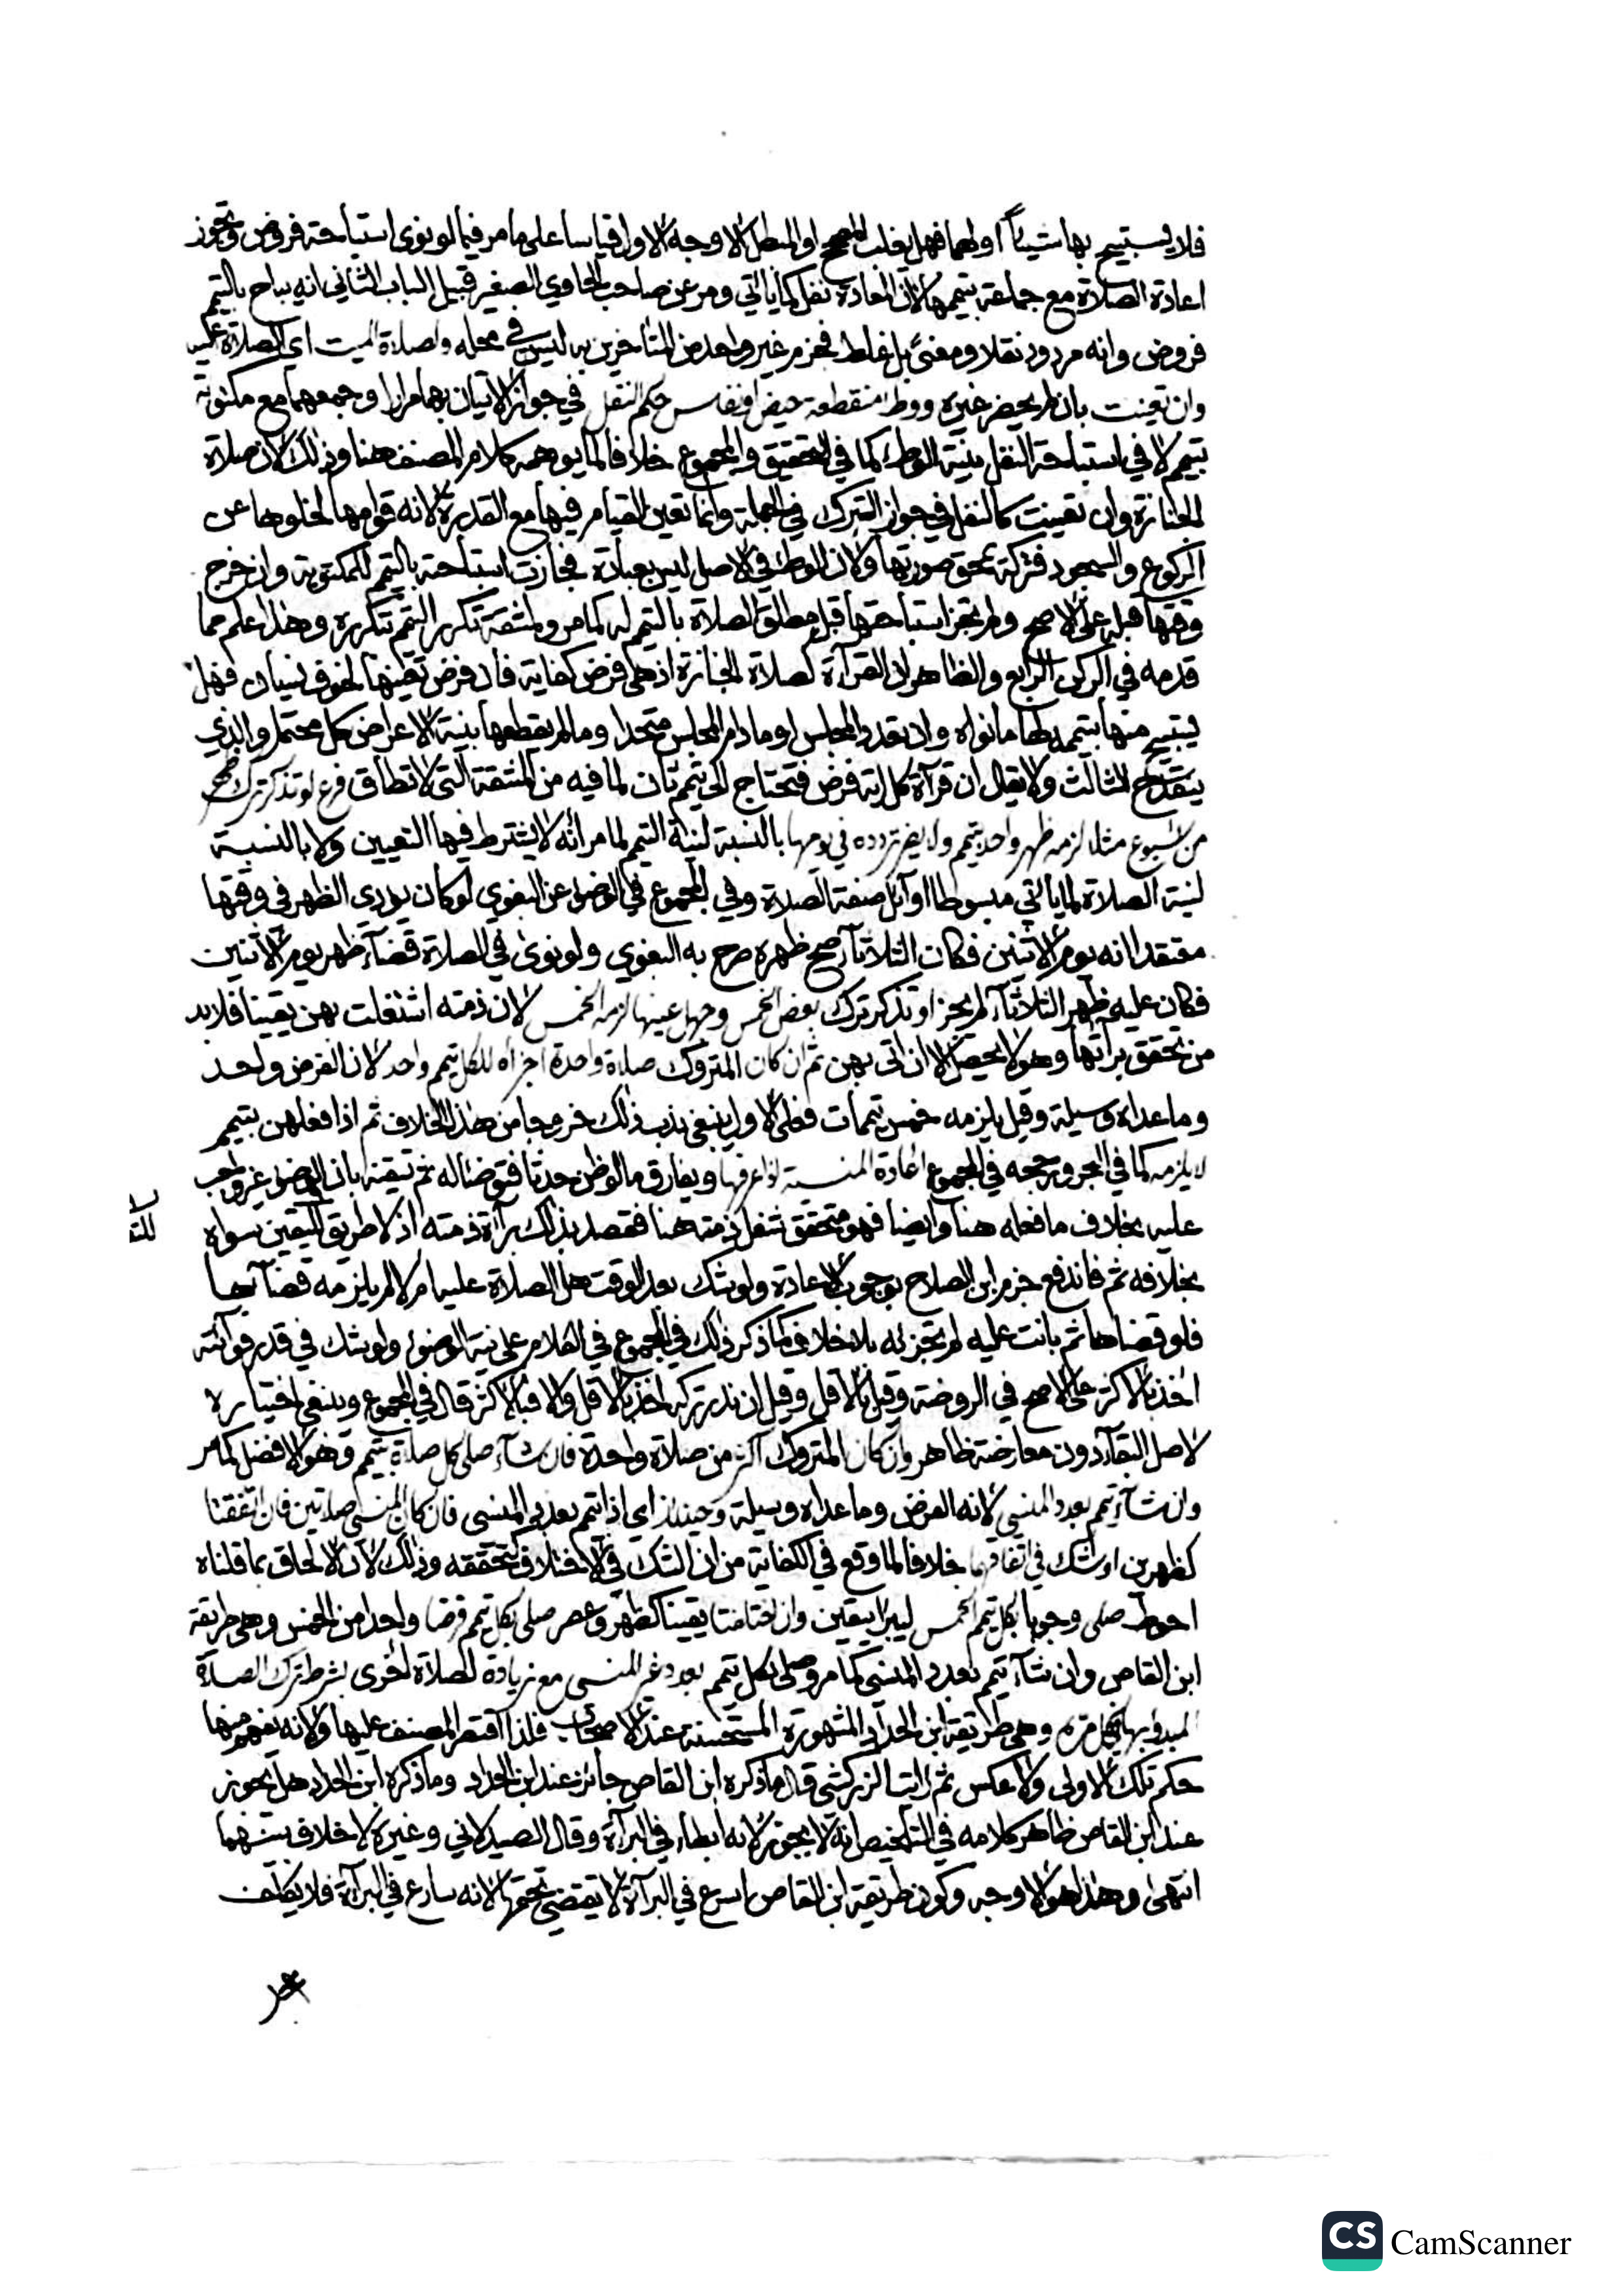 فلا يستبيح بها شيئاً او لهما فهل يغلب المصحح او المبطل الاوجه الاول قياسا على ما مر فيما لو نوى استباحة فروض وتجوز
اعادة الصلاة مع جماعة بتيممها لان المعادة نفل كما ياتي ومر عن صاحب الحاوي الصغير قبيل الباب الثاني انه يباح بالتيمم
فروض وانه مردود نقلا ومعنى بل غلط فجزم غير واحد من المتاخرين به ليس في محله ولصلاة الميت اي الصلاة عليه
وان تعينت بان لم يحضر غيره ووطء منقطعة حيض او نفاس حكم النفل في جواز الاتيان بها مرارا وجمعهما مع مكتوبة
بتيمم لا في استباحة النفل بنية الوطء كما في التحقيق والمجموع خلافا لما يوهمه كلام المصنف هنا وذلك لان صلاة
الجنازة وان تعينت كالنفل في جواز الترك في الجملة وانما تعين القيام فيها مع القدرة لانه قوامها لخلوها عن
الركوع والسجود فتركه يمحق صورتها ولان الوطء في الاصل ليس بعبادة فجازت استباحته بالتيمم للمكتوبة وان خرج
وقتها قبله على الاصح ولم يجز استباحتها قبل مطلق الصلاة بالتيمم له كما مر ولمشقة تكرر التيمم بتكرره وهذا علم مما
قدمه في الركن الرابع والظاهر ان القرآة كصلاة الجنازة اذ هي فرض كفاية فان فرض تعينها لخوف نسيان فهل
يستبيح منها بتيممه لها ما نواه وان تعدد المجلس او ما دام المجلس متحدا وما لم يقطعها بنية الاعراض كل محتمل والذي
ينقدح الثالث ولا يقال ان قرآة كل اية فرض فتحتاج الى تيمم ثان لما فيه من المشقة التي لا تطاق فرع لو تذكر ترك ظهر
من اسبوع مثلا لزمه ظهر واحد بتيمم ولا يضر تردده في يومها بالنسبة لنية التيمم لما مر انه لا يشترط فيها التعيين ولا بالنسبة
لنية الصلاة لما ياتي مبسوطا اوآئل صفة الصلاة وفي المجموع في الوضوء عن البغوي لو كان يودى الظهر في وقتها
معتقدا انه يوم الاثنين فكان الثلاثآ صح ظهره صرح به البغوي ولو نوى في الصلاة قضآء ظهر يوم الاثنين
فكان عليه ظهر الثلاثآء لم يجز او تذكر ترك بعض الخمس وجهل عينها لزمه الخمس لان ذمته اشتغلت بهن يقينا فلابد
من تحقق برآتها وهو لا يحصل الا ان اتى بهن ثم ان كان المتروك صلاة واحدة اجزاه للكل تيمم واحد لان الفرض واحد
وما عداه وسيلة وقيل يلزمه خمس تيممات فعلى الاول ينبغي ندب ذلك خروجا من هذا الخلاف ثم اذا فعلهن بتيمم
لا يلزمه كما في البحر ورجحه في المجموع اعادة المنسية اذا عرفها ويفارق ما لو ظن حدثا فتوضا له ثم تيقنه بان الوضوء غير واجب
عليه بخلاف ما فعله هنا وايضا فهو متحقق شغل ذمته هنا فقصد بذلك برآة ذمته اذ لا طريق لليقين سواه
بخلافه ثم فاندفع جزم ابن الصلاح بوجوب الاعادة ولو شك بعد الوقت هل الصلاة عليه ام لا لم يلزمه قضآءها
فلو قضاها ثم بانت عليه لم تجزئه بلا خلاف كما ذكر ذلك في المجموع في الكلام على نية الوضوء ولو شك في قدر فوآئته
اخذ بالاكثر على الاصح في الروضة وقيل بالاقل وقيل ان ندر تركه اخذ بالاقل والا فبالاكثر قال في المجموع وينبغي اختياره
لاصل البقآء دون معارضة ظاهر وان كان المتروك اكثر من صلاة واحدة فان شآء صلى كل صلاة بتيمم وهو الافضل كما مر
وان شآء تيمم بعدد المنسي لانه الفرض وما عداه وسيلة وحينئذ اي اذا تيمم بعدد المنسي فان كان المنسي صلاتين فان اتفقتا
كظهرين او شك في اتفاقهما خلافا لما وقع في الكفاية من ان الشك في الاختلاف كتحققه وذلك لان الالحاق بما قلناه
احوط صلى وجوبا بكل تيمم الخمس ليبرا بيقين وان اختلفتا يقينا كظهر وعصر صلى بكل تيمم فرضا واحدا من الخمس وهى طريقة
ابن القاص وان شآء تيمم بعدد المنسي كما مر وصلى بكل تيمم بعدد غير المنسي مع زيادة لصلاة اخرى بشرط ترك الصلاة
المبدو بها بكل مرة وهى طريقة ابن الحداد المشهورة المستحسنة عند الاصحاب فلذا اقتصر المصنف عليها ولانه يفهم منها
حكم تلك الاولى ولا عكس ثم رايت الزركشي قال ما ذكره ابن القاص جائز عند ابن الحداد وما ذكره ابن الحداد هل يجوز
عند ابن القاص ظاهر كلامه في التلخيص انه لا يجوز لانه ابطاء في البرآة وقال الصيدلاني وغيره لا خلاف بينهما
انتهى وهذا هو الاوجه وكون طريقة ابن القاص اسرع في البرآة لا يقتضي تحتمها لانه سارع في البرآة فلا يكلف
CS CamScanner